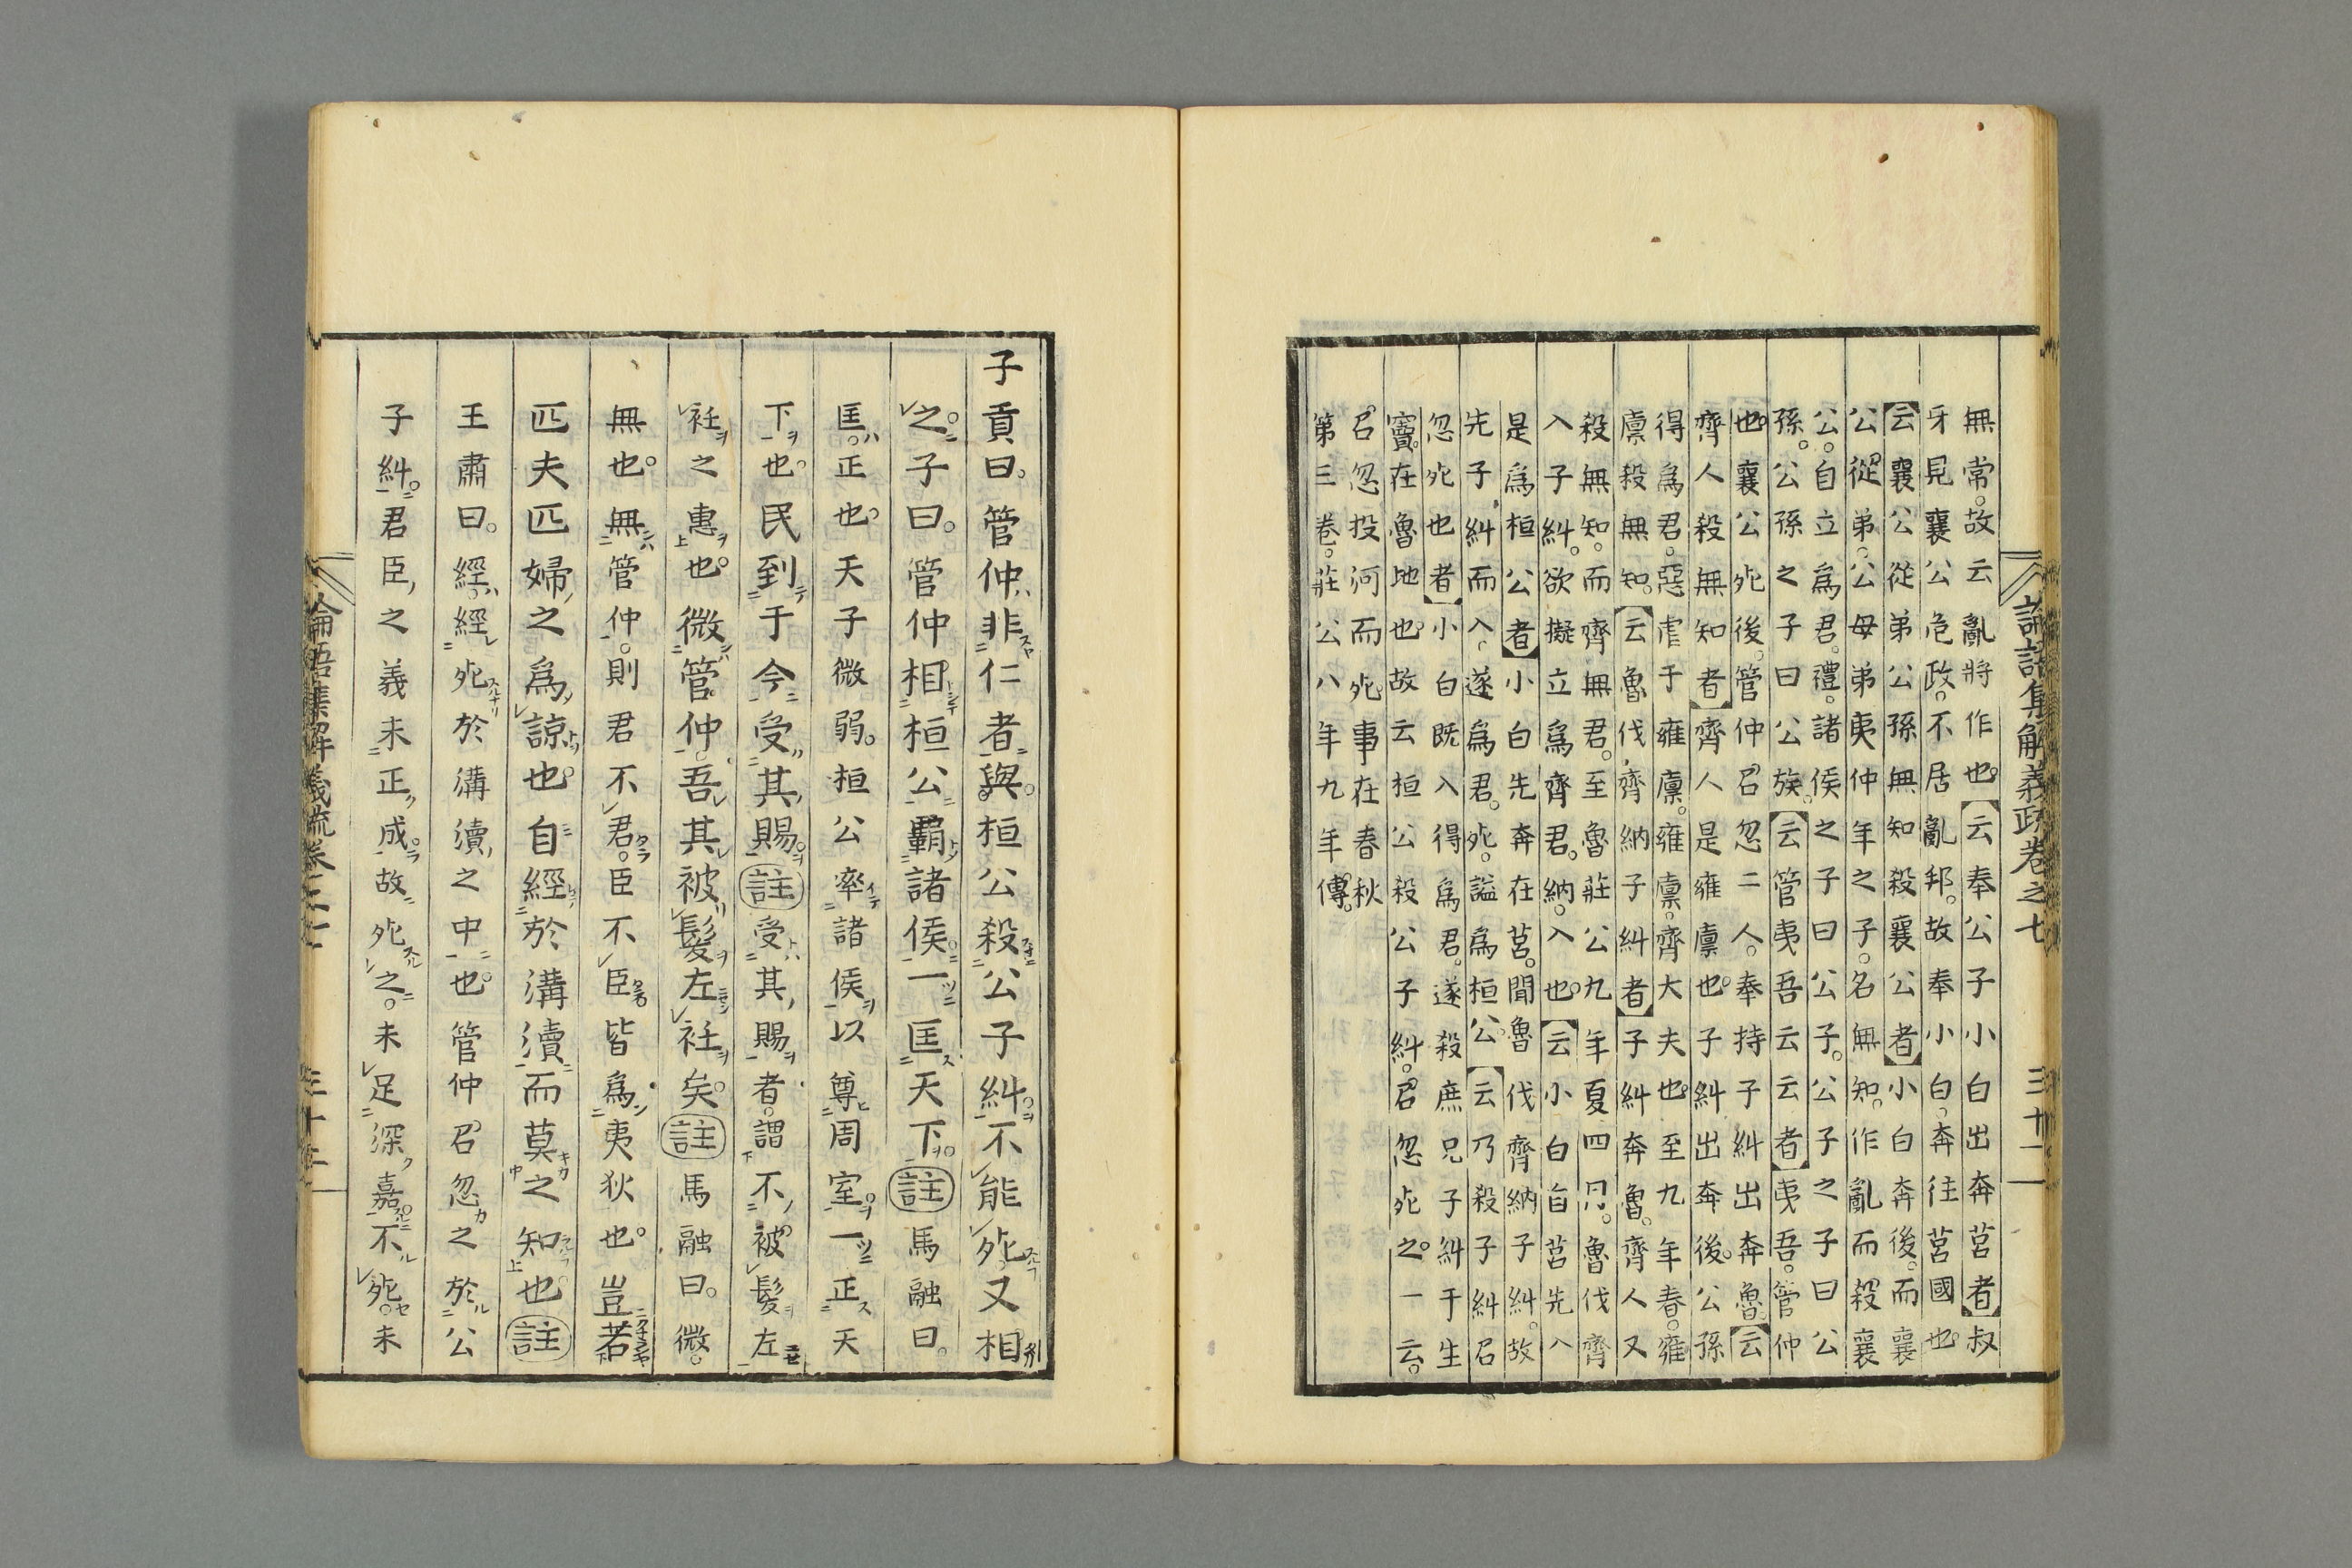 論語集解義疏卷之七 三十一
無常。故云亂將作也。云奉公子小白出奔莒者叔
牙見襄公危政。不居亂邦。故奉小白。奔往莒國也
云襄公從弟公孫無知殺襄公者小白奔後。而襄
公從弟。公母弟夷仲年之子。名無知。作亂而殺襄
公。自立爲君。禮。諸侯之子曰公子。公子之子曰公
孫。公孫之子曰公族。云管夷吾云云者夷吾。管仲
也。襄公死後。管仲召忽二人。奉持子糾出奔魯。云
齊人殺無知者齊人是雍廩也。子糾出奔後。公孫
得爲君。惡虐于雍廩。雍廩。齊大夫也。至九年春。雍
廩殺無知。云魯伐齊納子糾者子糾奔魯。齊人又
殺無知。而齊無君。至魯莊公九年夏四月。魯伐齊
入子糾。欲擬立爲齊君。納。入也。云小白自莒先入
是爲桓公者小白先奔在莒。聞魯伐齊納子糾。故
先子糾而入。遂爲君。死。謚爲桓公。云乃殺子糾召
忽死也者小白既入得爲君。遂殺庶兄子糾于生
竇。在魯地也。故云桓公殺公子糾。召忽死之。一云。
召忽投河而死。事在春秋
第三卷。莊公八年九年傳。
子貢曰。管仲非仁者與。桓公殺公子糾。不能死。又相
之。子曰。管仲相桓公。霸諸侯。一匡天下。註馬融曰。
匡。正也。天子微弱。桓公率諸侯以尊周室。一正天
下也。民到于今受其賜。註受其賜者。謂不被髮左
衽之惠也。微管仲。吾其被髮左衽矣。註馬融曰。微。
無也。無管仲。則君不君。臣不臣。皆爲夷狄也。豈若
匹夫匹婦之爲諒也。自經於溝瀆而莫之知也。註
王肅曰。經。經死於溝瀆之中也。管仲召忽之於公
子糾。君臣之義未正成。故死之。未足深嘉。不死。未
論語集解義疏卷之七